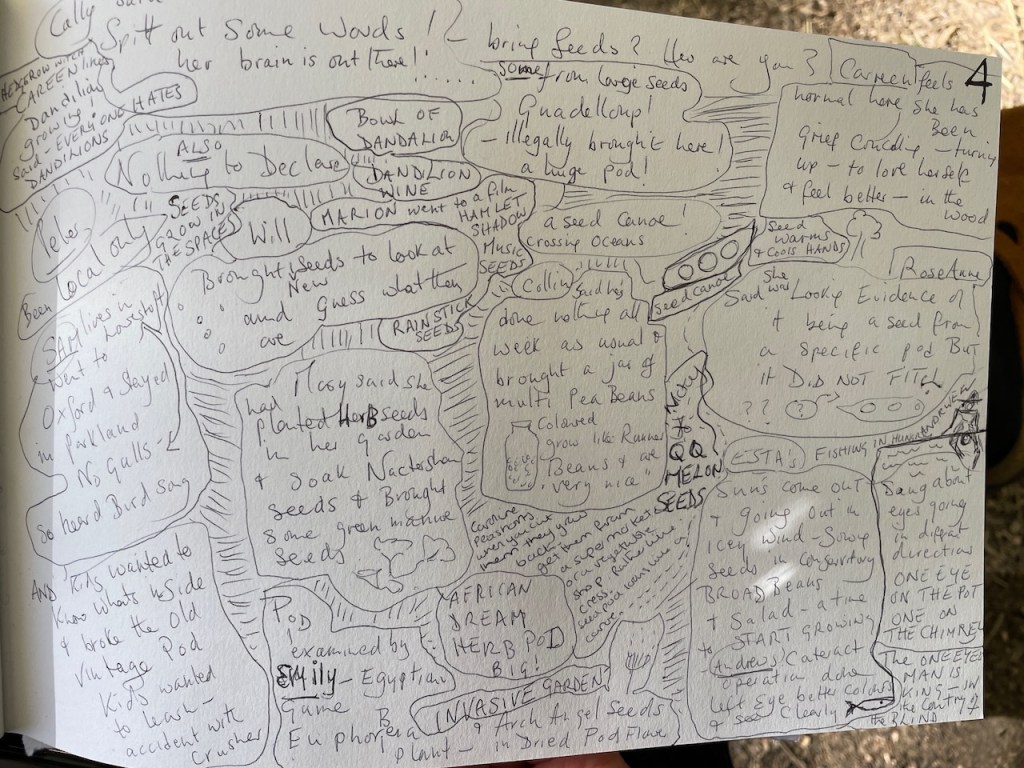 Cally said
Spitt out Some Words!
her brain is out there!! ......
bring seeds? How are you?
4
HEDGEROW WITCH
CAREEN likes
Dandilion
growing!
said - EVERYONE HATES
DANDILIONS
ALSO
Nothing to Declare
BOWL OF
DANDALION
DANDILION
WINE
some from large seeds
Guadelloup!
- illegally brought here!
a huge pod!
Carmen feels
normal here she has
Been
grief Councling - turning
up - to love herself
& feel better - in the
wood
Peter
Local only
SEEDS
GROW IN
THE SPACES
Will
MARION went to a film
HAMLET
SHADOW
Music
SEEDS
Brought seeds to look at
New
and Guess what then
are
RAINSTICK
SEEDS
a seed Canoe!
Crossing Oceans
Seed canoe
Seed
warms
& cools HANDS
RoseAnne
Said she was Looking Evidence of
it being a seed from
a specific pod BUT
it DID NOT FIT!
? ? ?
Been
SAM lives in
Lowestoft
went to
Oxford & Stayed
in Parkland
No gulls -
So heard Bird Song
Macy said she
had planted HerB seeds
in her garden
& Soak Nactershan
seeds & Brought
some green manure
Seeds
Collin
Said he's
done nothing all
week as usual &
brought a jar of
multi Pea Beans
Colored
grow like Runner
Beans & are
very nice"
NoJay
QQ
MELON
SEEDS
ESTA's
FISHING IN
Sun's come out
& going out in
icey wind - Sowing
Seeds in Conservatory
BROAD Beans
& Salad - a time
to START GROWING
Andrews Cataract
operation done
left Eye better colours
& see Clearly
Sang about
eyes going
in diffrant
directions
ONE EYE
ON THE POT
ONE ON
THE CHIMNEL
The ONE EYED
MAN IS
KING - IN
the COUNTRY of
the BLIND
AND Kids wanted to
Know whats inside
& broke the Old
Vintage Pod
Kids wanted
to leash -
accident with
crusher
POD
examined by
Emily - Egyptian
Tume B
Eu phorpera
plant -
AFRICAN
DREAM
HERB POD
BIG!
INVASIVE GARDEN
& Arch Angel Seeds
in Dried Pod Flax
Caroline
when your
mean they grow
get them from
a supermarket
or a vegetable
shop
cress